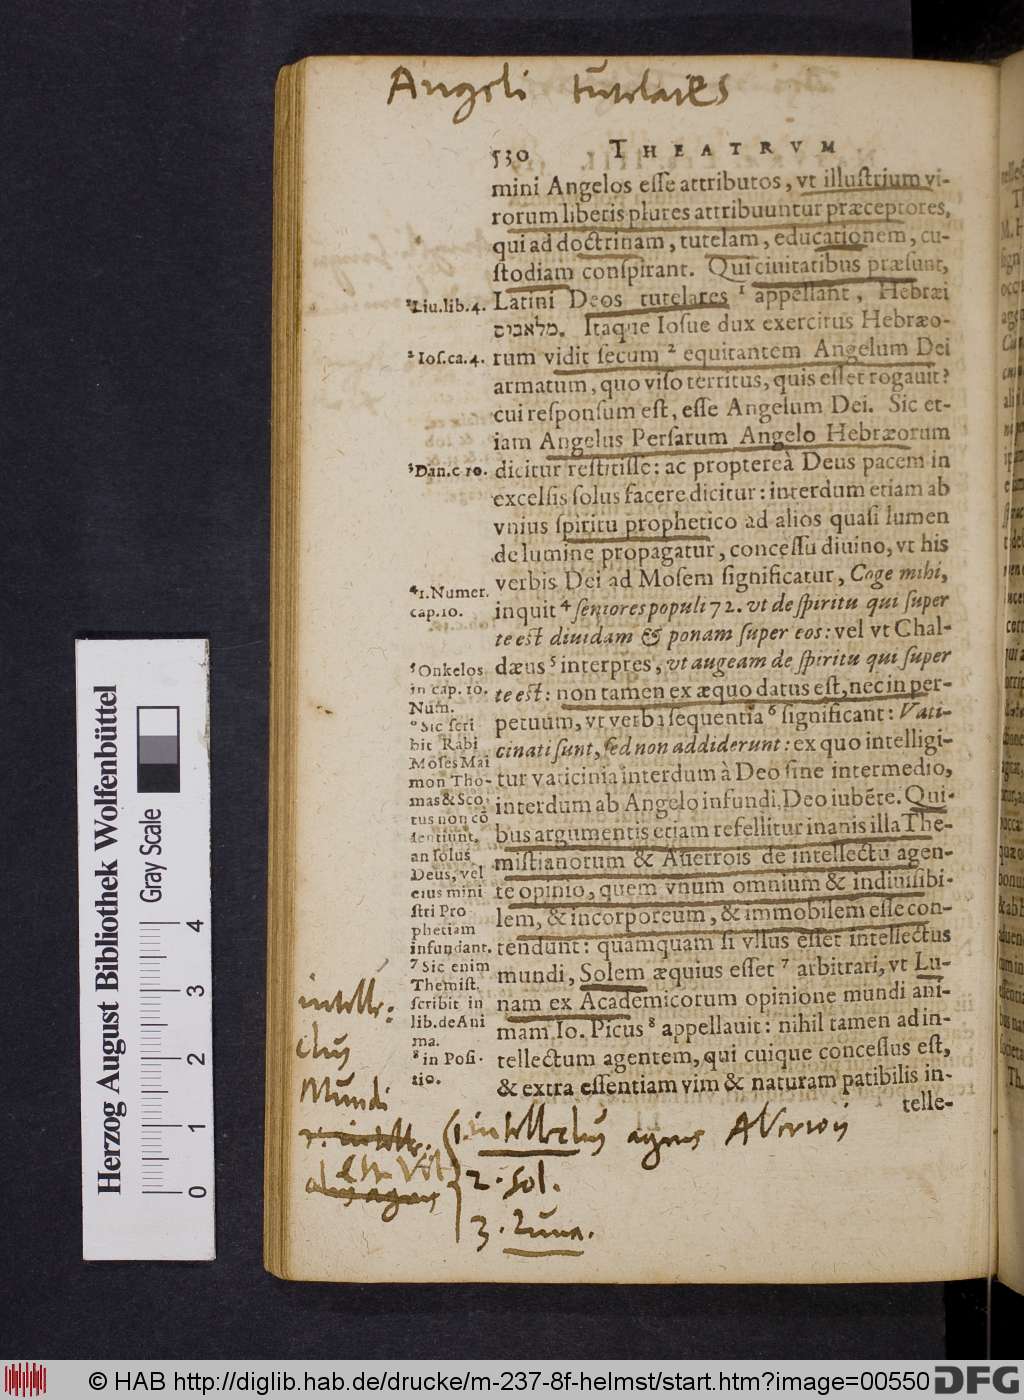 Angeli tutelares
530 THEATRVM
mini Angelos esse attributos, vt illustrium vi-
rorum liberis plures attribuuntur præceptores,
qui ad doctrinam, tutelam, educationem, cu-
stodiam conspirant. Qui ciuitatibus præsunt,
Latini Deos tutelares ¹ appellant, Hebræi
מלאבים. Itaque Iosue dux exercitus Hebræo-
rum vidit secum ² equitantem Angelum Dei
armatum, quo viso territus, quis esset rogauit?
cui responsum est, esse Angelum Dei. Sic et-
iam Angelus Persarum Angelo Hebræorum
dicitur restitisse: ac proptereà Deus pacem in
excelsis solus facere dicitur: interdum etiam ab
vnius spiritu prophetico ad alios quasi lumen
de lumine propagatur, concessu diuino, vt his
verbis Dei ad Mosem significatur, Coge mihi,
inquit ⁴ seniores populi 72. vt de spiritu qui super
te est diuidam & ponam super eos: vel vt Chal-
dæus ⁵ interpres, vt augeam de spiritu qui super
te est: non tamen ex æquo datus est, nec in per-
petuum, vt verba sequentia ⁶ significant: Vati-
cinati sunt, sed non addiderunt: ex quo intelligi-
tur vaticinia interdum à Deo sine intermedio,
interdum ab Angelo infundi, Deo iubēte. Qui-
bus argumentis etiam refellitur inanis illa The-
mistianorum & Auerrois de intellectu agen-
te opinio, quem vnum omnium & indiuisibi-
lem, & incorporeum, & immobilem esse con-
tendunt: quamquam si vllus esset intellectus
mundi, Solem æquius esset ⁷ arbitrari, vt Lu-
nam ex Academicorum opinione mundi ani-
mam Io. Picus ⁸ appellauit: nihil tamen ad in-
tellectum agentem, qui cuique concessus est,
& extra essentiam vim & naturam patibilis in-
telle-
¹Liu.lib.4.
² Ios.ca.4.
³Dan.c 10.
⁴1.Numer.
cap.10.
⁵Onkelos
in cap. 10.
Num.
⁶ Sic scri
bit Rabi
Moses Mai
mon Tho-
mas & Sco
tus non cō
sentiunt,
an solus
Deus, vel
eius mini
stri Pro
phetiam
infundant.
⁷ Sic enim
Themist.
scribit in
lib. de Ani
ma.
⁸ in Posi-
tio.
intelle-
ctus
Mundi
est vel
1. intellectus agens Averrois
2. Sol.
3. Luna.
Herzog August Bibliothek Wolfenbüttel
Gray Scale
4
3
2
1
0
© HAB http://diglib.hab.de/drucke/m-237-8f-helmst/start.htm?image=00550 DFG